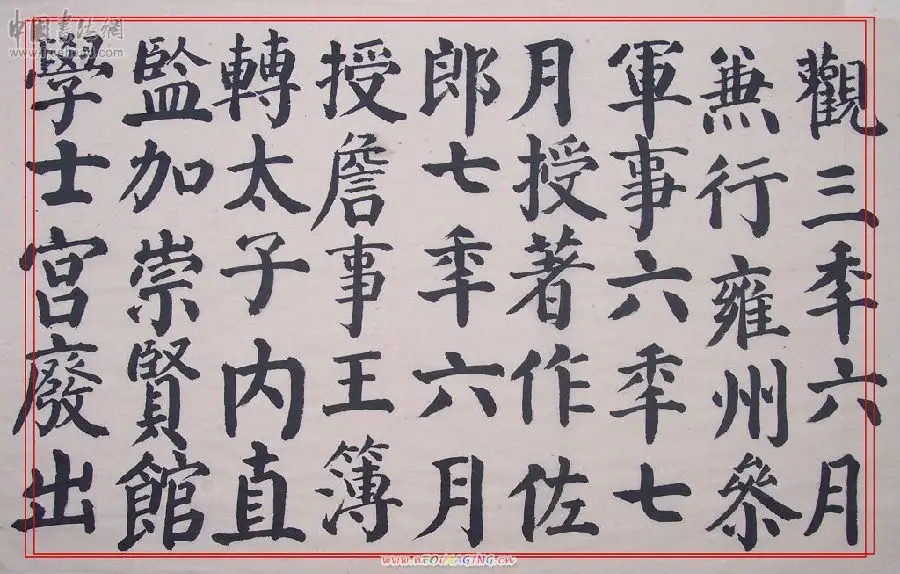 觀三秊六月
兼行雍州參
軍事六秊七
月授著作佐
郎七秊六月
授詹事王簿
轉太子内直
監加崇賢館
學士宮廢出
中国书法網
www.nEOiMAGING.cn